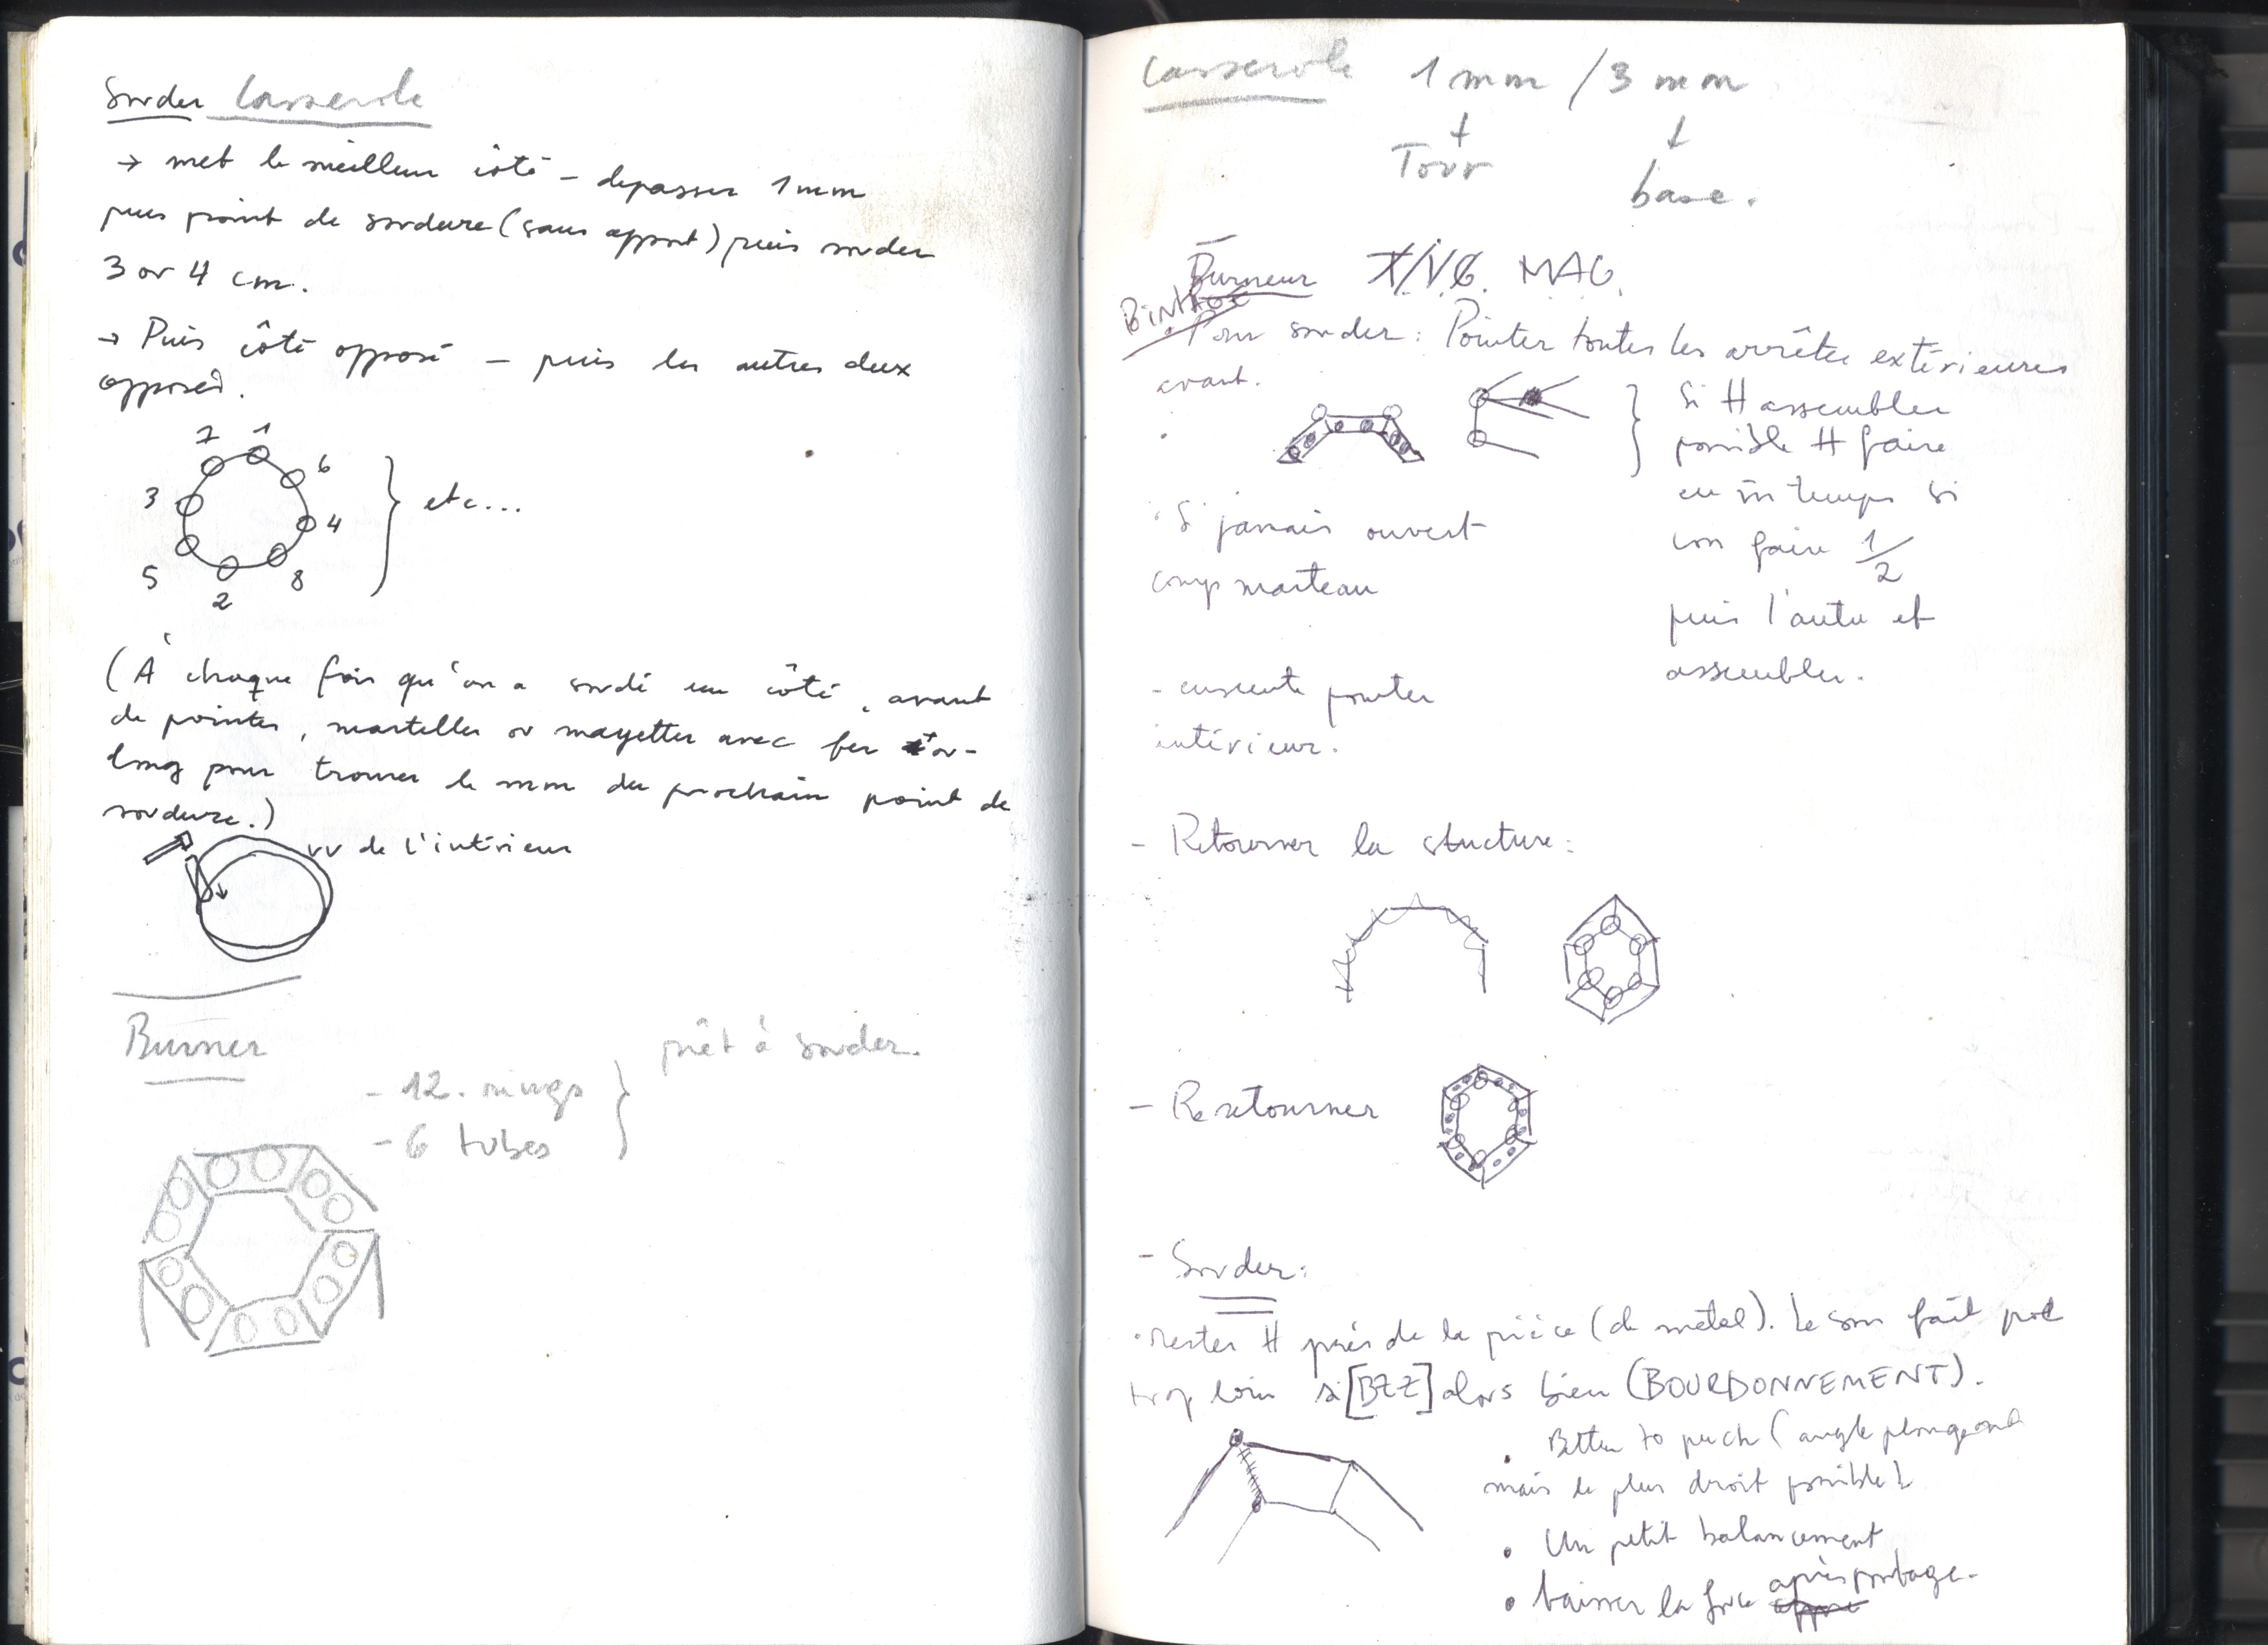 Souder Casserole
→ met le meilleur côté - depasser 1mm
puis point de soudure (sans apport) puis souder
3 ou 4 cm.
→ Puis côté opposé - puis les autres deux
opposés.
7 1
6
3
4
etc...
5
8
2
(A chaque fois qu'on a soudé un côté, avant
de pointer, marteller ou mayetter avec fer
long pour trouver le mm du prochain point de
soudure.)
vv de l'intérieur
Burner
prêt à souder.
- 12. rings
- 6 tubes
Casserole 1 mm / 3 mm
Tour
base.
Burneur MAG.
Pour souder: Pointer toutes les arrêtes extérieures
avant.
Si # assembler
possible # faire
en m̄ temps si
non faire 1/2
puis l'autre et
assembler.
· Si jamais ouvert
coup marteau
- ensuite pointer
intérieur.
- Retourner la stucture:
- Re retourner
- Souder:
· rester # près de la pièce (de métal). Le son fait
trop loin si [BZZ] alors bien (BOURDONNEMENT).
• Better to push (angle plongeant
mais le plus droit possible)
• Un petit balancement
• baisser la force après pointage.